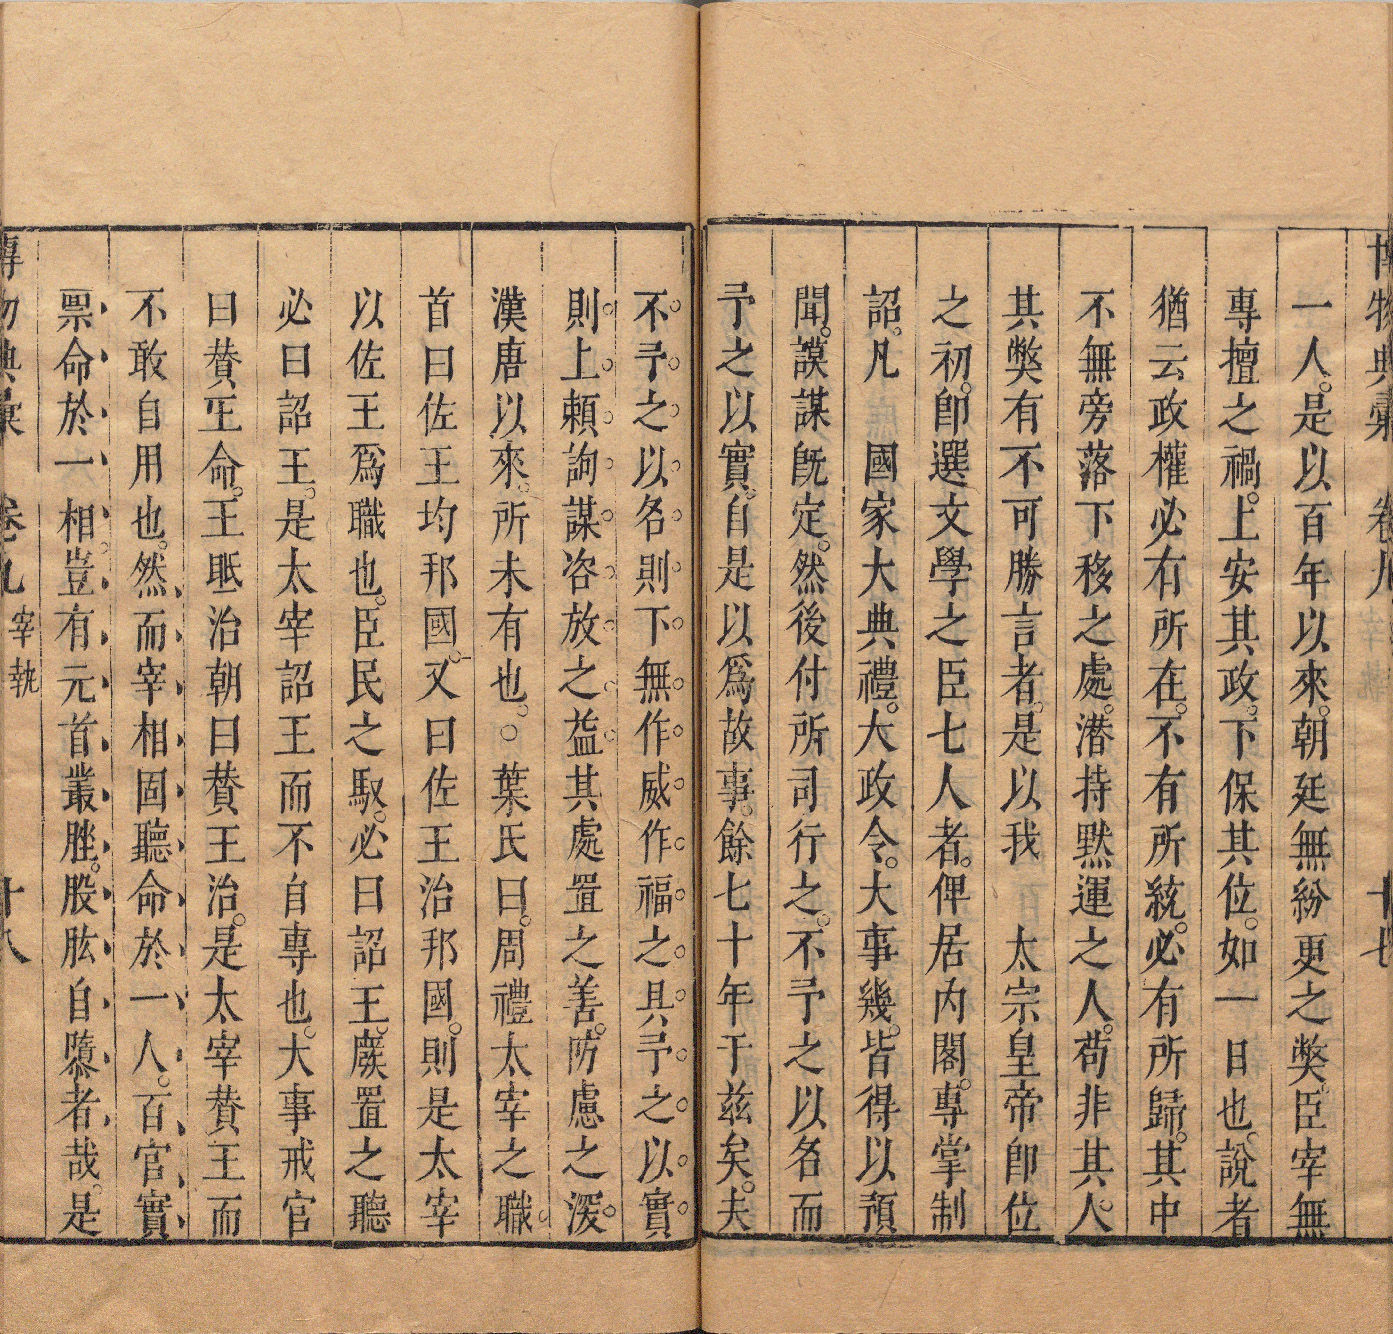 博物典彙　卷九　十七
一人。是以百年以來。朝廷無紛更之弊。臣宰無
專擅之禍。上安其政。下保其位。如一日也。說者
猶云政權必有所在。不有所統。必有所歸。其中
不無旁落下移之處。潜持默運之人。苟非其人。
其弊有不可勝言者。是以我　太宗皇帝卽位
之初。卽選文學之臣七人者。俾居內閣。專掌制
詔。凡　國家大典禮。大政令。大事幾。皆得以預
聞。謨謀旣定。然後付所司行之。不予之以名而
予之以實。自是以爲故事。餘七十年于兹矣。夫
不予之以名則下無作威作福之具予之以實
則上頼詢謀咨放之益其處置之善。防慮之深。
漢唐以來。所未有也。○葉氏曰。周禮太宰之職。
首曰佐王均邦國。又曰佐王治邦國。則是太宰
以佐王爲職也。臣民之馭。必曰詔王。廢置之聽
必曰詔王。是太宰詔王而不自專也。大事戒官
曰賛王命。王眡治朝曰賛王治。是太宰賛王而
不敢自用也。然而宰相固聽命於一人。百官實
禀命於一相。豈有元首叢脞。股肱自隳者哉。是
博物典彙　卷九　宰執　十八